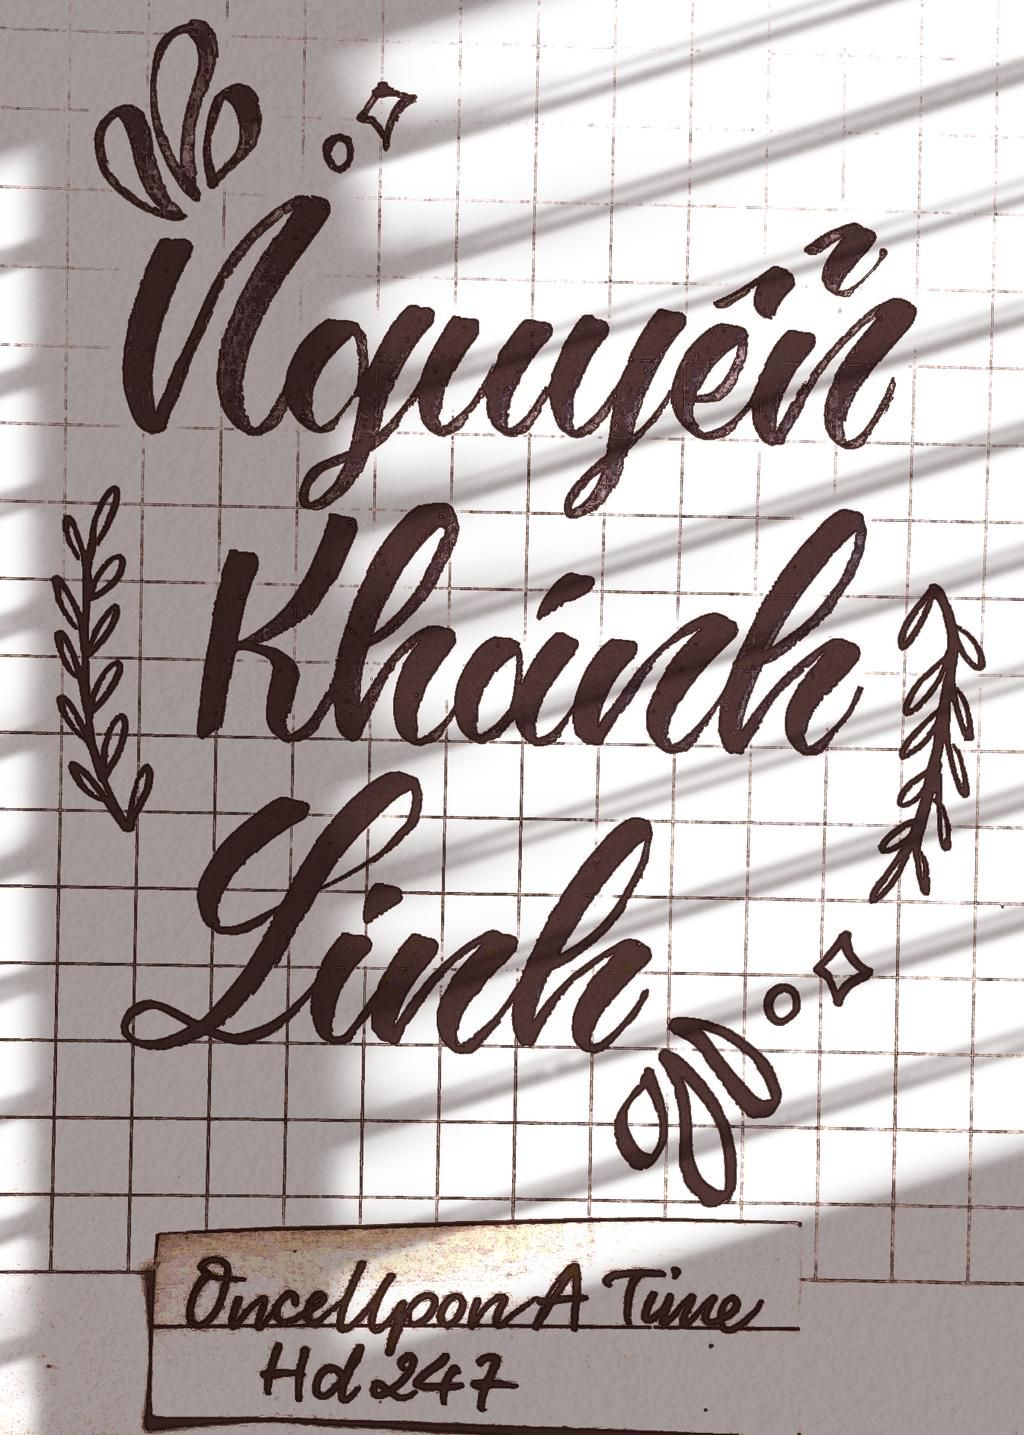 Nguyễn
Khánh
Linh
OnceUpon A Time
Hd 247